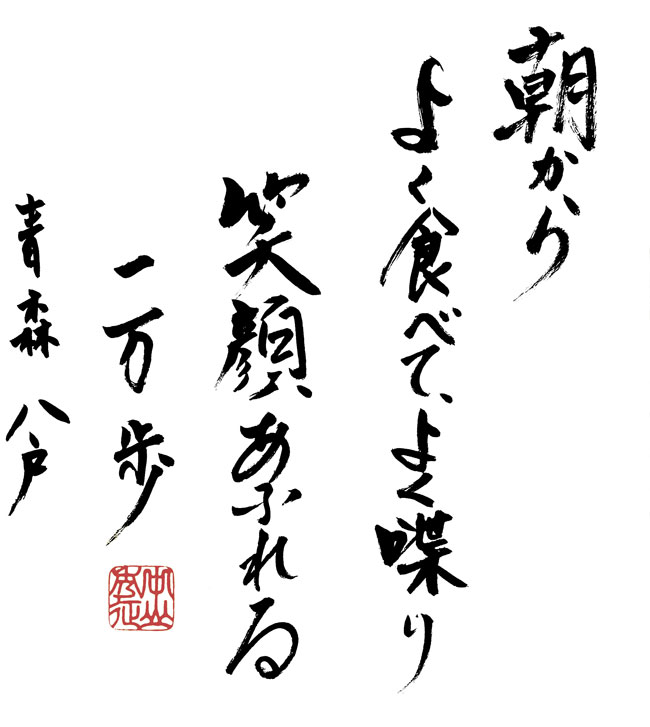 朝から
よく食べて、よく喋り
笑顔あふれる
一万歩
青森 八戸